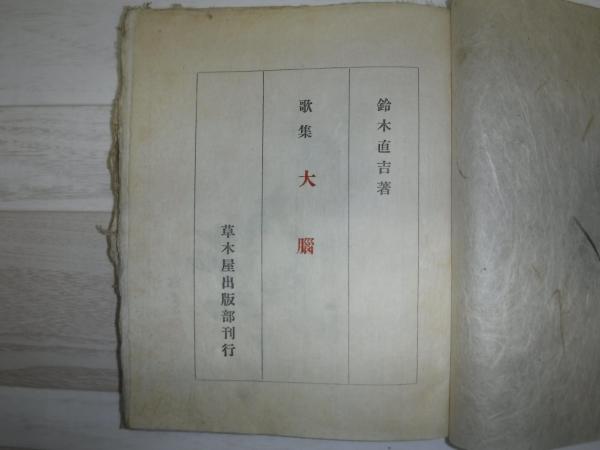 鈴木直吉著
歌集 大腦
草木屋出版部刊行